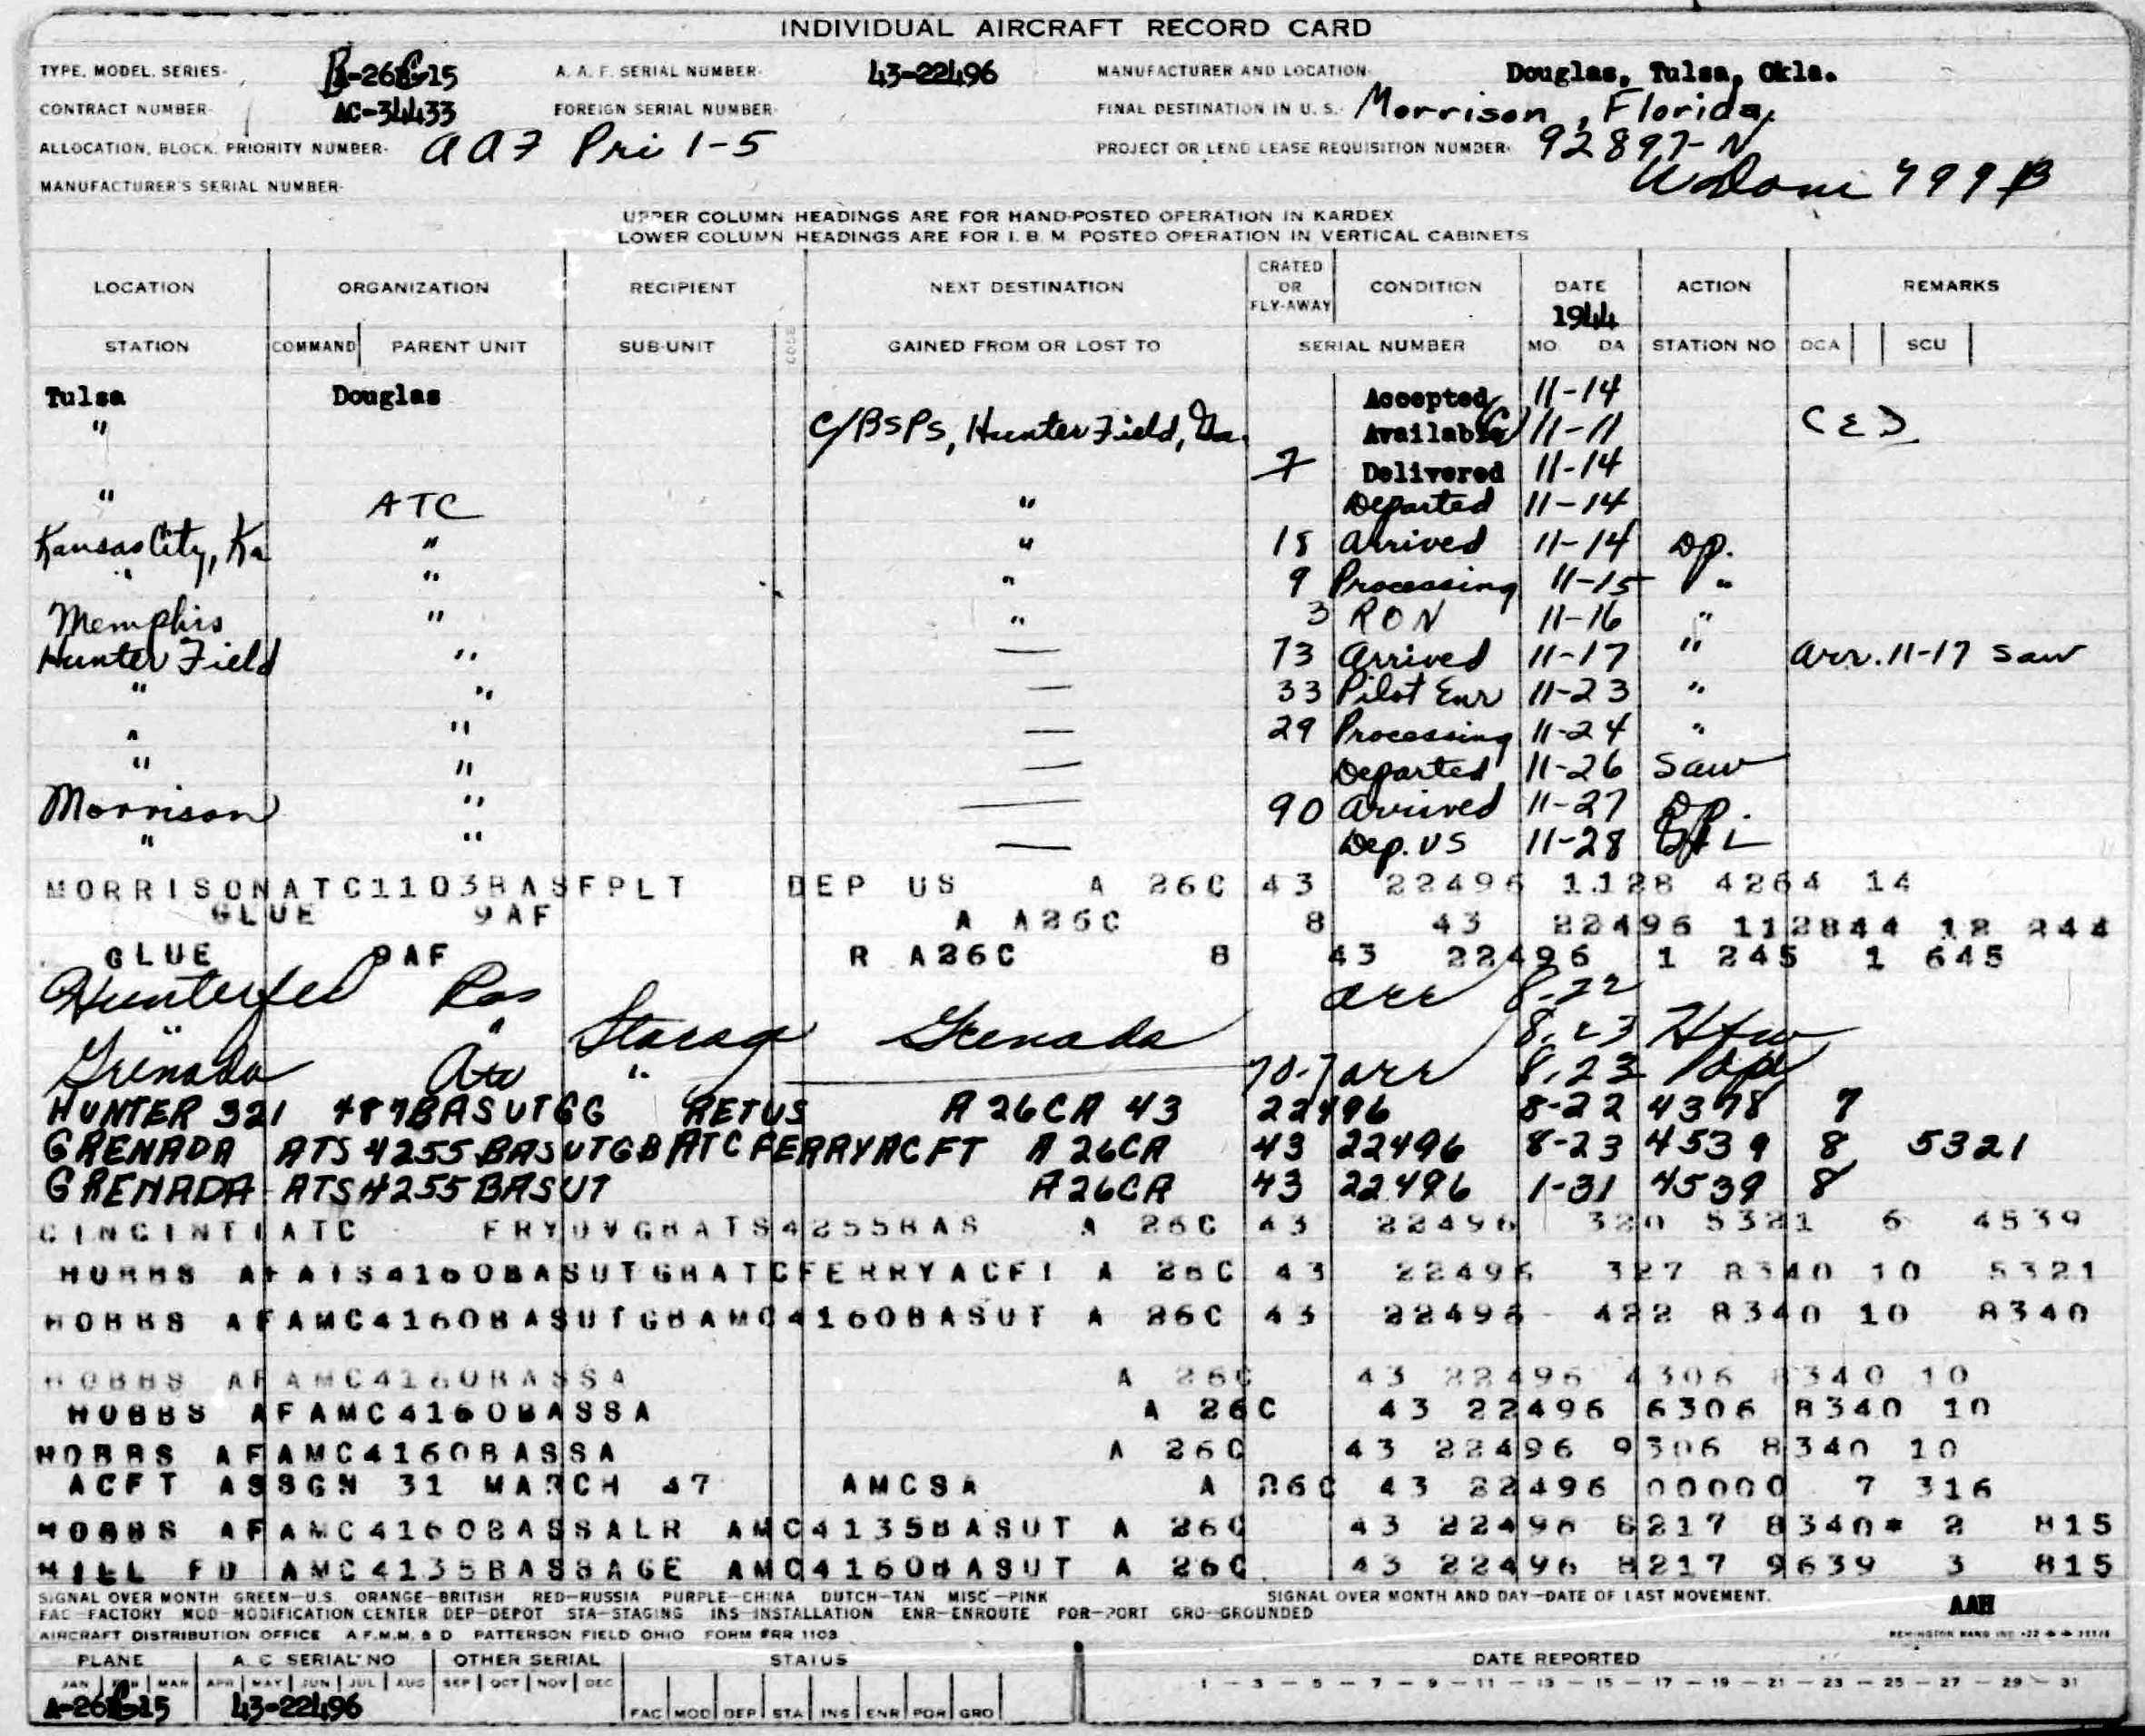 INDIVIDUAL AIRCRAFT RECORD CARD
TYPE, MODEL, SERIES- B-26C-15 A. A. F. SERIAL NUMBER- 43-22496 MANUFACTURER AND LOCATION- Douglas, Tulsa, Okla.
CONTRACT NUMBER- AC-34433 FOREIGN SERIAL NUMBER- FINAL DESTINATION IN U. S.- Morrison, Florida,
ALLOCATION, BLOCK, PRIORITY NUMBER- AAF Pri 1-5 PROJECT OR LEND LEASE REQUISITION NUMBER- 92897-N
MANUFACTURER'S SERIAL NUMBER- 799 B
UPPER COLUMN HEADINGS ARE FOR HAND-POSTED OPERATION IN KARDEX
LOWER COLUMN HEADINGS ARE FOR I. B. M. POSTED OPERATION IN VERTICAL CABINETS
LOCATION ORGANIZATION RECIPIENT NEXT DESTINATION CRATED OR FLY-AWAY CONDITION DATE 1944 ACTION REMARKS
STATION COMMAND PARENT UNIT SUB-UNIT CODE GAINED FROM OR LOST TO SERIAL NUMBER MO. DA STATION NO DCA SCU
Tulsa Douglas Accepted 11-14
" C/BSPS, Hunter Field, Ga. Available 11-11 CED
7 Delivered 11-14
" ATC " Departed 11-14
Kansas City, Ka " " 18 Arrived 11-14 Dp.
" " " 9 Processing 11-15 "
Memphis " " 3 RON 11-16 "
Hunter Field " — 73 Arrived 11-17 " Arr. 11-17 Saw
" " — 33 Pilot Enr 11-23 "
" " — 29 Processing 11-24 "
" " — Departed 11-26 Saw
Morrison " — 90 Arrived 11-27 Dp
" " — Dep. US 11-28
MORRISONATC1103BASFPLT DEP US A 26C 43 22496 1128 4264 14
GLUE 9AF A A26C 8 43 22496 112844 12 244
GLUE 9AF R A26C 8 43 22496 1 245 1 645
Hunterfld Arr 8-22
" " Storage Grenada 8-23
Grenada " Arr 8-23
HUNTER 321 487BASUTGG RETUS A 26CA 43 22496 8-22 4378 7
GRENADA ATS 4255BASUTGBATCFERRYACFT A 26CA 43 22496 8-23 4539 8 5321
GRENADA ATS4255BASUT A 26CA 43 22496 1-31 4539 8
CINCINTIATC FRYDVGBATS4255BAS A 26C 43 22496 320 5321 6 4539
HOBBS AFATS4160BASUTGBATCFERRYACFT A 26C 43 22496 327 8340 10 5321
HOBBS AFAMC4160BASUTGBAMC4160BASUT A 26C 43 22496 422 8340 10 8340
HOBBS AFAMC4160BASSA A 26C 43 22496 4306 8340 10
HOBBS AFAMC4160BASSA A 26C 43 22496 6306 8340 10
HOBBS AFAMC4160BASSA A 26C 43 22496 9306 8340 10
ACFT ASSGN 31 MARCH 47 AMCSA A 26C 43 22496 00000 7 316
HOBBS AFAMC4160BASSALR AMC4135BASUT A 26C 43 22496 8217 8340* 2 815
HILL FD AMC4135BASBAGE AMC4160BASUT A 26C 43 22496 8217 9639 3 815
SIGNAL OVER MONTH GREEN-U.S. ORANGE-BRITISH RED-RUSSIA PURPLE-CHINA DUTCH-TAN MISC-PINK SIGNAL OVER MONTH AND DAY-DATE OF LAST MOVEMENT.
FAC FACTORY MOD MODIFICATION CENTER DEP-DEPOT STA-STAGING INS INSTALLATION ENR-ENROUTE POR-PORT GRO-GROUNDED AAH
AIRCRAFT DISTRIBUTION OFFICE A.F.M.M. & D PATTERSON FIELD OHIO FORM #RR 1103
PLANE A. C SERIAL NO OTHER SERIAL STATUS DATE REPORTED
JAN FEB MAR APR MAY JUN JUL AUG SEP OCT NOV DEC 1 - 3 - 5 - 7 - 9 - 11 - 13 - 15 - 17 - 19 - 21 - 23 - 25 - 27 - 29 - 31
A-26B-15 43-22496 FAC MOD DEP STA INS ENR POR GRO